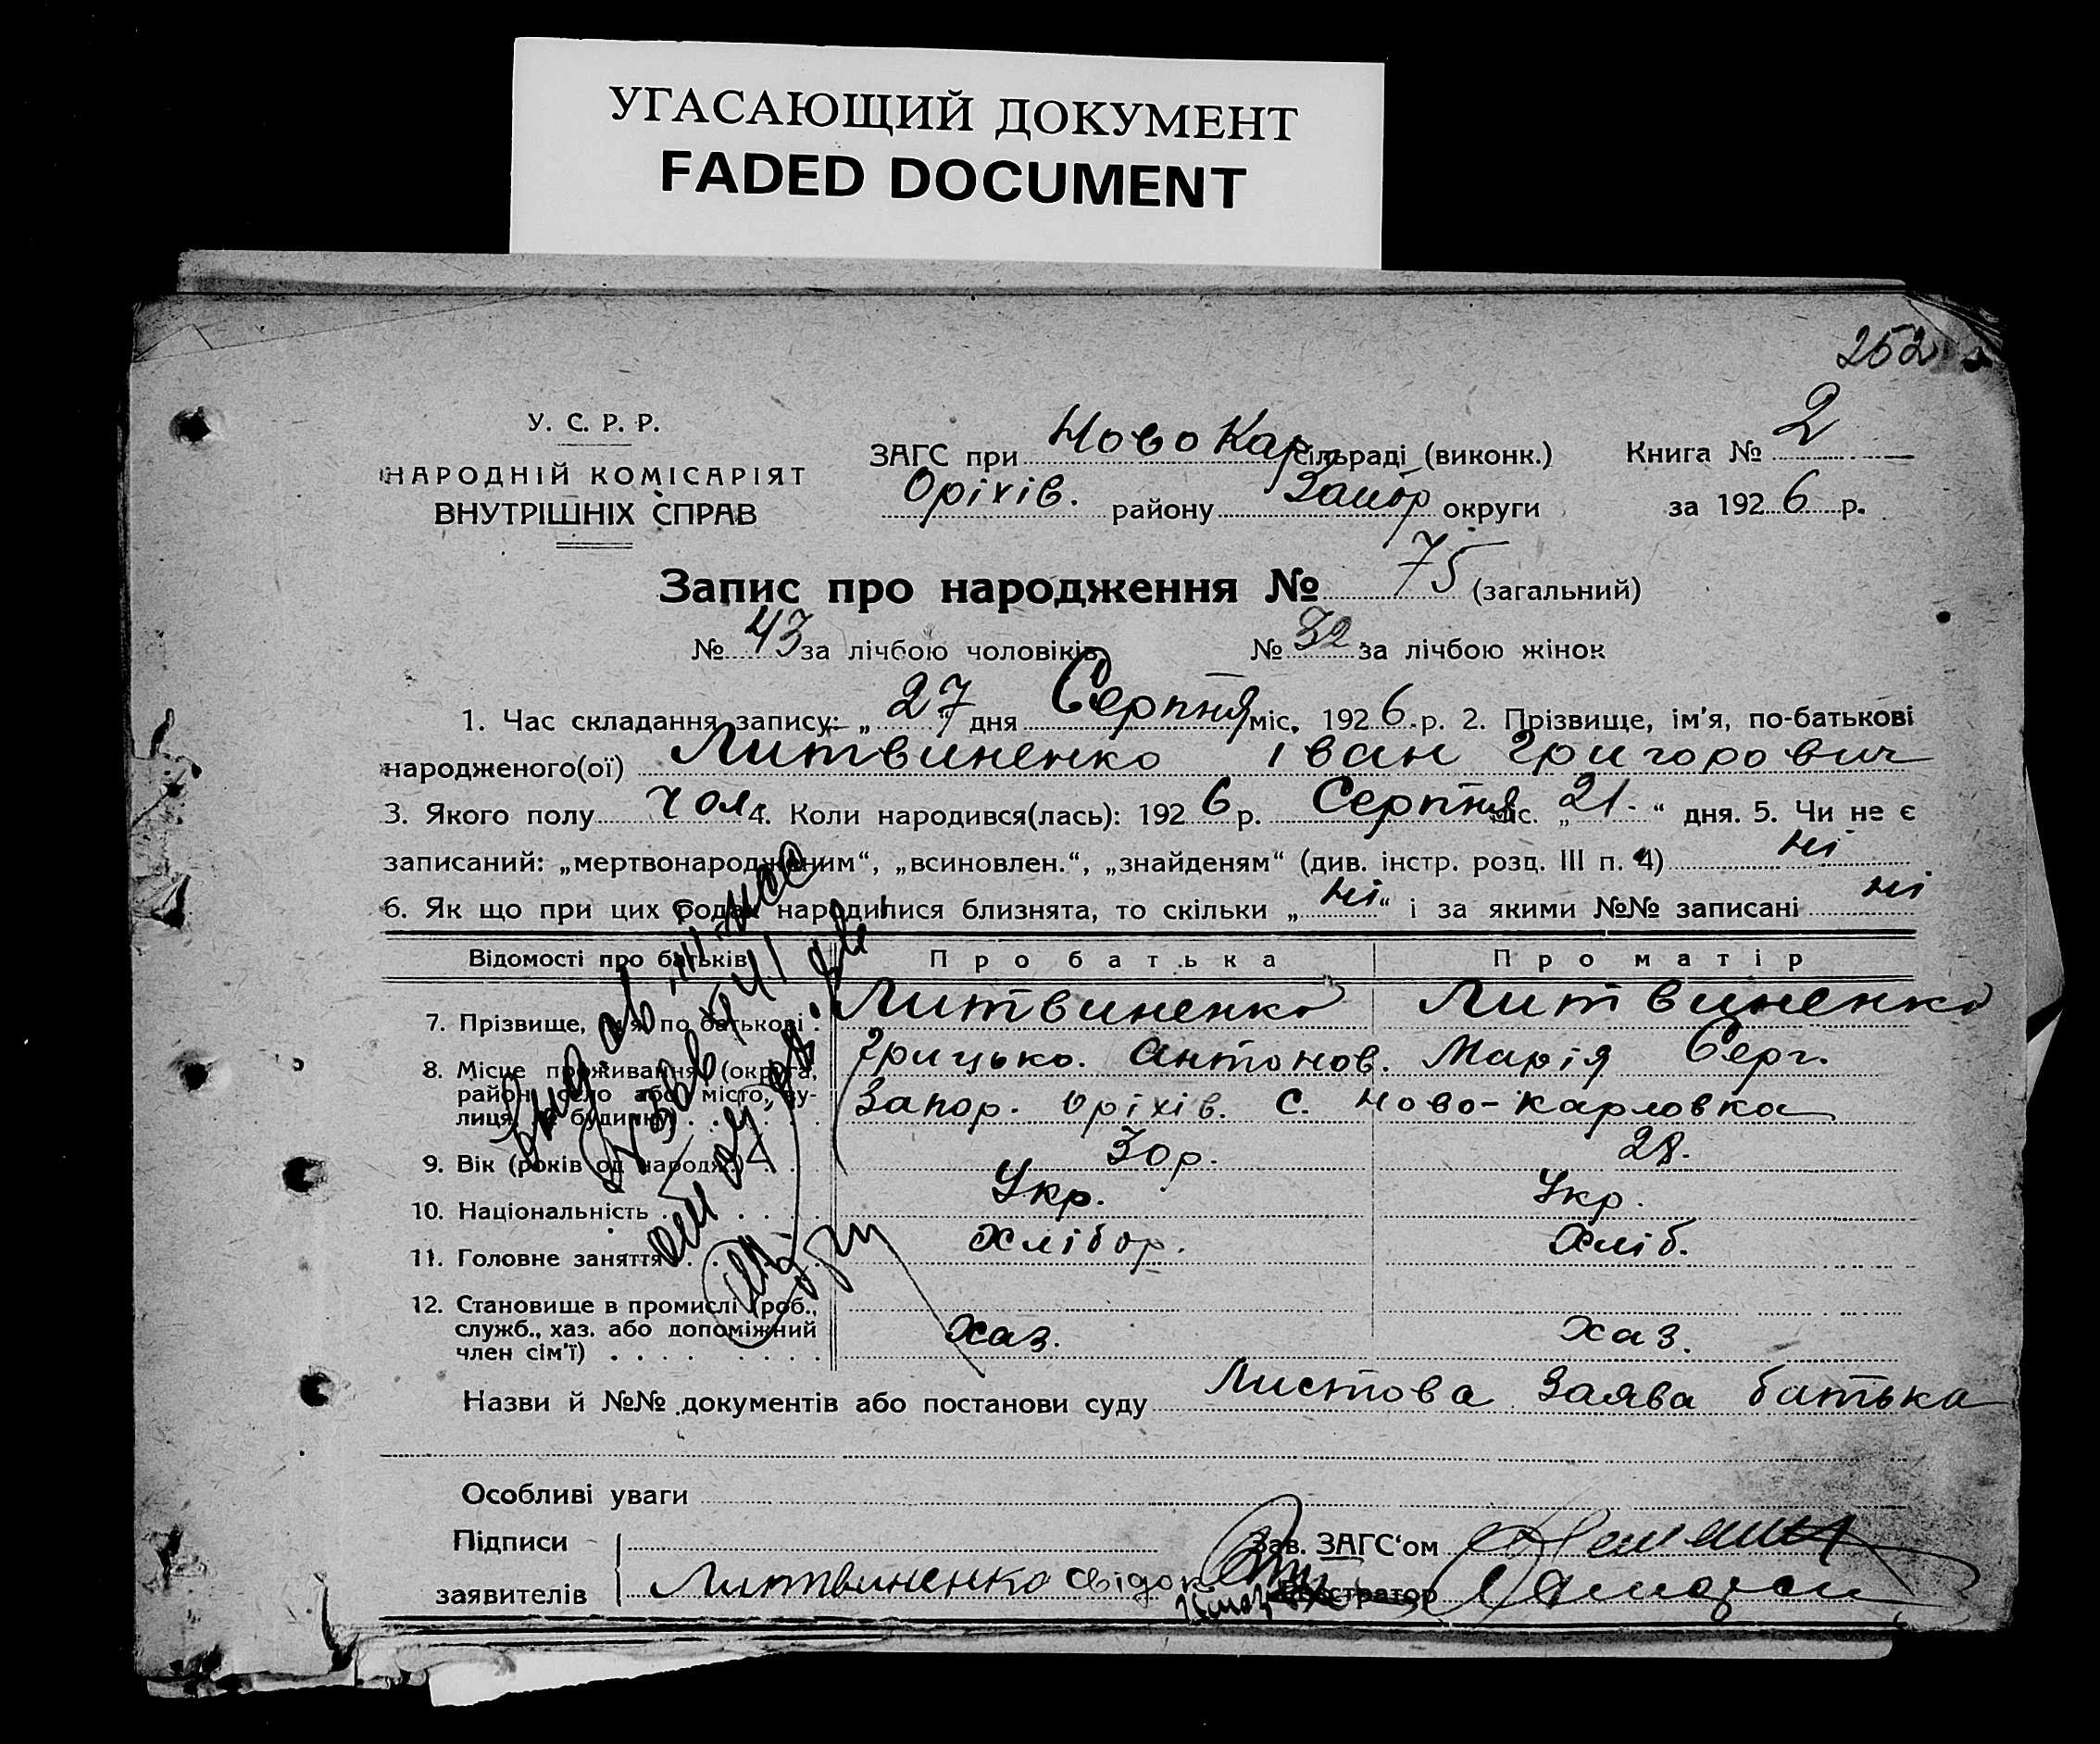 УГАСАЮЩИЙ ДОКУМЕНТ
FADED DOCUMENT
252
У. С. Р. Р.
НАРОДНІЙ КОМІСАРІЯТ
ВНУТРІШНІХ СПРАВ
ЗАГС при Ново Кар. сільраді (виконк.)
Оріхів. району Запор округи
Книга № 2
за 1926 р.
Запис про народження № 75 (загальний)
№ 43 за лічбою чоловіків № 32 за лічбою жінок
1. Час складання запису: „ 27 " дня Серпня міс. 1926 р. 2. Прізвище, ім'я, по-батькові
народженого(ої) Литвиненко Іван Григорович
3. Якого полу чол. 4. Коли народився(лась): 1926 р. Серпня міс. „ 21. “ дня. 5. Чи не є
записаний: „мертвонародженим“, „всиновлен.“, „знайденям“ (див. інстр. розд. III п. 4) ні
6. Як що при цих родах народилися близнята, то скільки „ ні “ і за якими №№ записані ні
Відомості про батьків Про батька Про матір
7. Прізвище, ім'я по батькові . Литвиненко Литвиненко
Грицько. Антонов. Марія Серг.
8. Місце проживання (округа,
район, село або місто, ву-
лиця, № будинку) . . . . . . Запор. Оріхів. с. Ново-Карловка
9. Вік (років од народж.) . . . 30 р. 28.
10. Національність . . . . . . Укр. Укр.
11. Головне заняття . . . . . . Хлібор. Хліб.
12. Становище в промислі (роб.,
служб., хаз. або допоміжний
член сім'ї) . . . . . . . . Хаз. Хаз.
Назви й №№ документів або постанови суду Листова Заява батька
Особливі уваги
Підписи
заявителів Литвиненко свідок
Зав. ЗАГС‘ом
Реєстратор